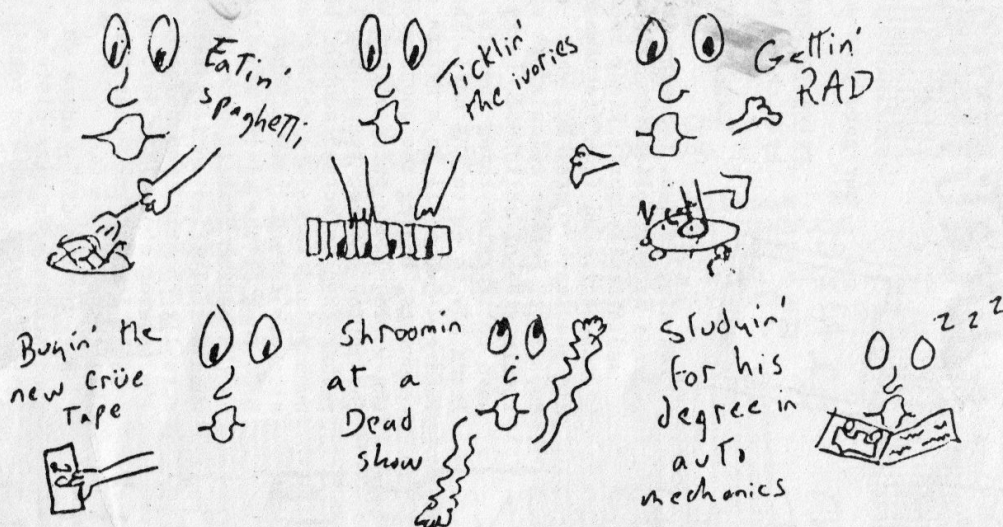 Eatin'
spaghetti
Ticklin'
the ivories
Gettin'
RAD
Buyin' the
new Crüe
Tape
Shroomin
at a
Dead
show
Studyin'
for his
degree in
auto
mechanics
z z z